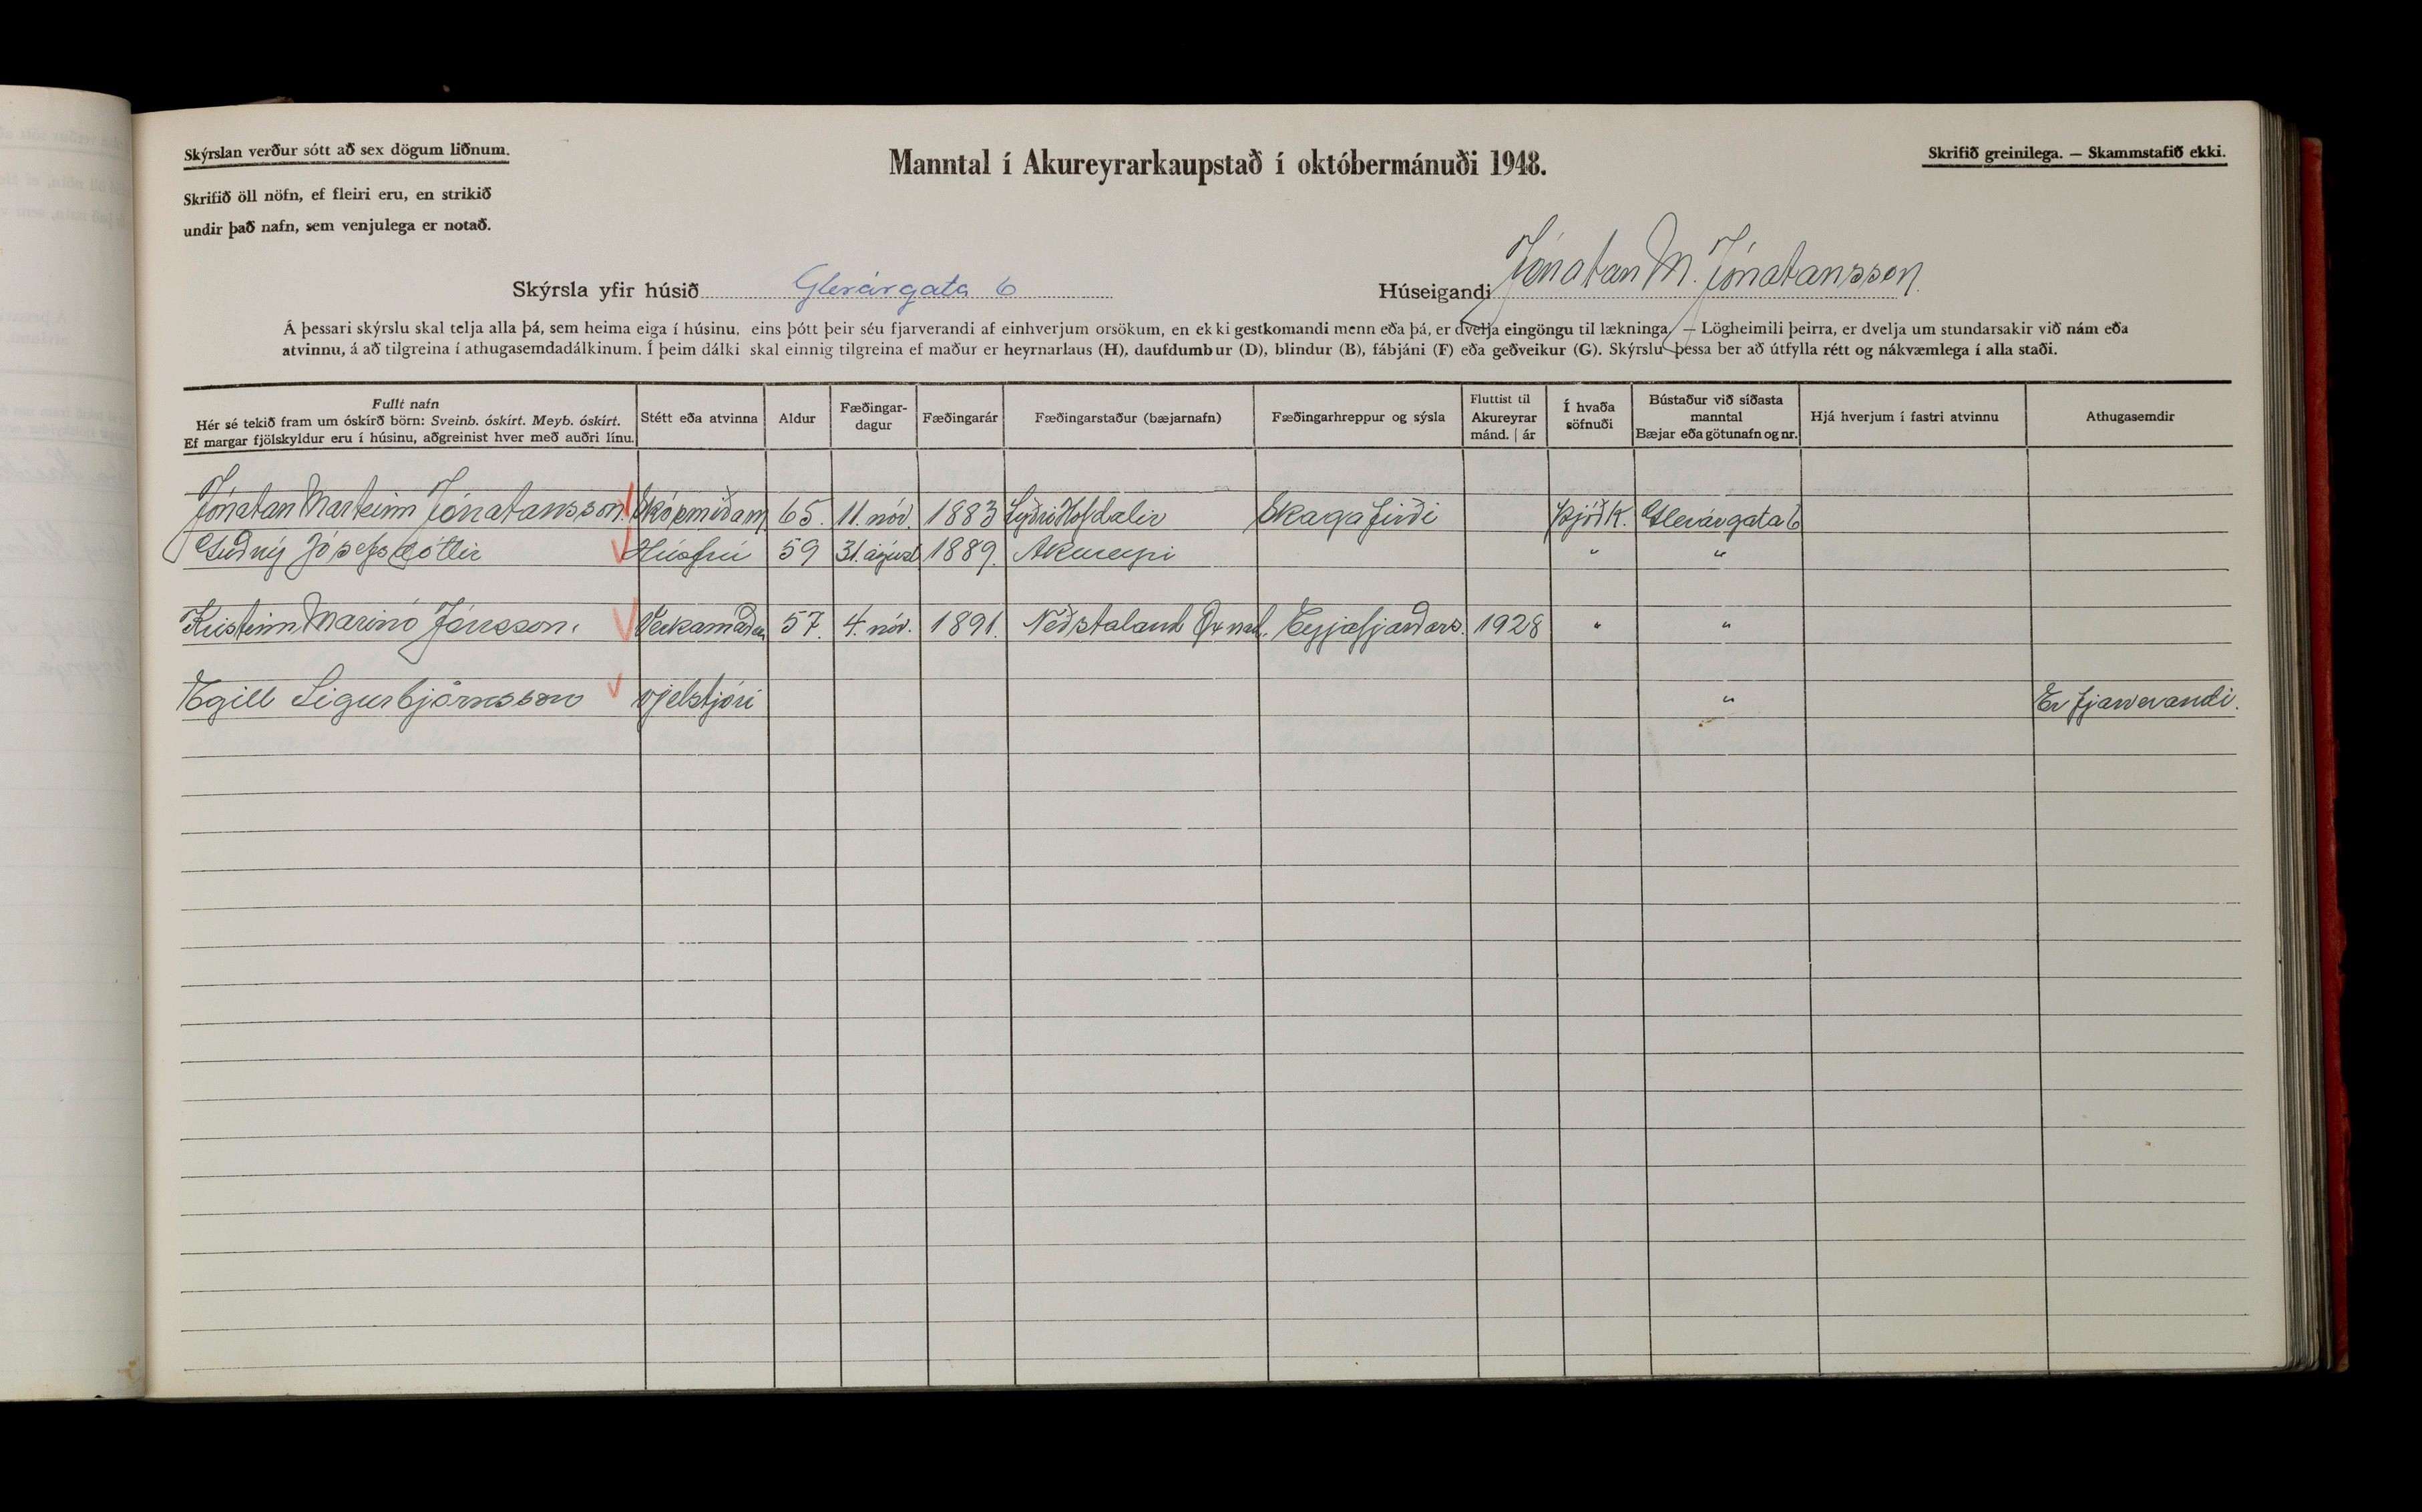 Skýrslan verður sótt að sex dögum liðnum.
Manntal í Akureyrarkaupstað í októbermánuði 1948.
Skrifið greinilega. — Skammstafið ekki.
Skrifið öll nöfn, ef fleiri eru, en strikið
undir það nafn, sem venjulega er notað.
Skýrsla yfir húsið Glerárgata 6 Húseigandi Jónatan M. Jónatansson.
Á þessari skýrslu skal telja alla þá, sem heima eiga í húsinu, eins þótt þeir séu fjarverandi af einhverjum orsökum, en ekki gestkomandi menn eða þá, er dvelja eingöngu til lækninga. — Lögheimili þeirra, er dvelja um stundarsakir við nám eða
atvinnu, á að tilgreina í athugasemdadálkinum. Í þeim dálki skal einnig tilgreina ef maður er heyrnarlaus (H), daufdumbur (D), blindur (B), fábjáni (F) eða geðveikur (G). Skýrslu þessa ber að útfylla rétt og nákvæmlega í alla staði.
Fullt nafn
Hér sé tekið fram um óskírð börn: Sveinb. óskírt. Meyb. óskírt.
Ef margar fjölskyldur eru í húsinu, aðgreinist hver með auðri línu.
Stétt eða atvinna
Aldur
Fæðingar-
dagur
Fæðingarár
Fæðingarstaður (bæjarnafn)
Fæðingarhreppur og sýsla
Fluttist til
Akureyrar
mánd. | ár
Í hvaða
söfnuði
Bústaður við síðasta
manntal
Bæjar eða götunafn og nr.
Hjá hverjum í fastri atvinnu
Athugasemdir
Jónatan Marteinn Jónatansson. Skósmiðam 65. 11. nóv. 1883 Syðri Hofdalir Skagafirði Þjóðk. Glerárgata 6
Guðný Jósefsdóttir Húsfrú 59 31. ágúst 1889. Akureyri " "
Kristinn Marinó Jónsson. Verkamaður 57. 4. nóv. 1891. Neðstaland Öxnad. Eyjafjarðars. 1928 " "
Egill Sigurbjörnsson vjelstjóri " Er fjarverandi.